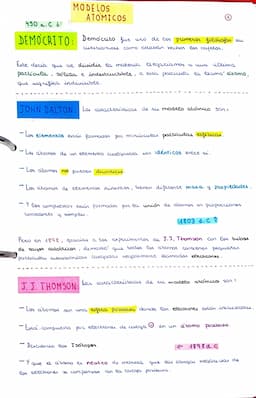 MODELOS
ATOMICOS
450 a.C
DEMÓCRITO: Demócrito fue uno de los primeros filósofos en
cuestionarse como estaban hechos los objetos.
Éste decía que si dividías la materia llegaríamos a una última
partícula, sólida e indestructible, a esta partícula la llamó átomo,
que significa indivisible.
JOHN DALTON: Las características de su modelo atómico son:
- Los elementos están formados por minúsculas partículas esféricas
- Los átomos de un elemento cualquiera son idénticos entre sí.
- Los átomos no pueden dividirse
- Los átomos de elementos distintos, tienen diferente masa y propiedades.
- Y los compuestos están formados por la unión de átomos en proporciones
constantes y simples.
1803 d.C
Pero en 1897, gracias a los experimentos de J.J. Thomson con los tubos
de rayos catódicos, demostró que todos los átomos contienen pequeñas
partículas subatómicas cargadas negativamente llamadas electrones.
J.J. THOMSON: Las características de su modelo atómico son:
- Los átomos son una esfera positiva donde los electrones están incrustados.
- Está compuesto por electrones de carga ⊖ en un átomo positivo
- Descubrió los Isótopos
1898 d.C
- Y que el átomo es neutro de manera que las cargas negativas de
los electrones se compensan con la carga positiva.